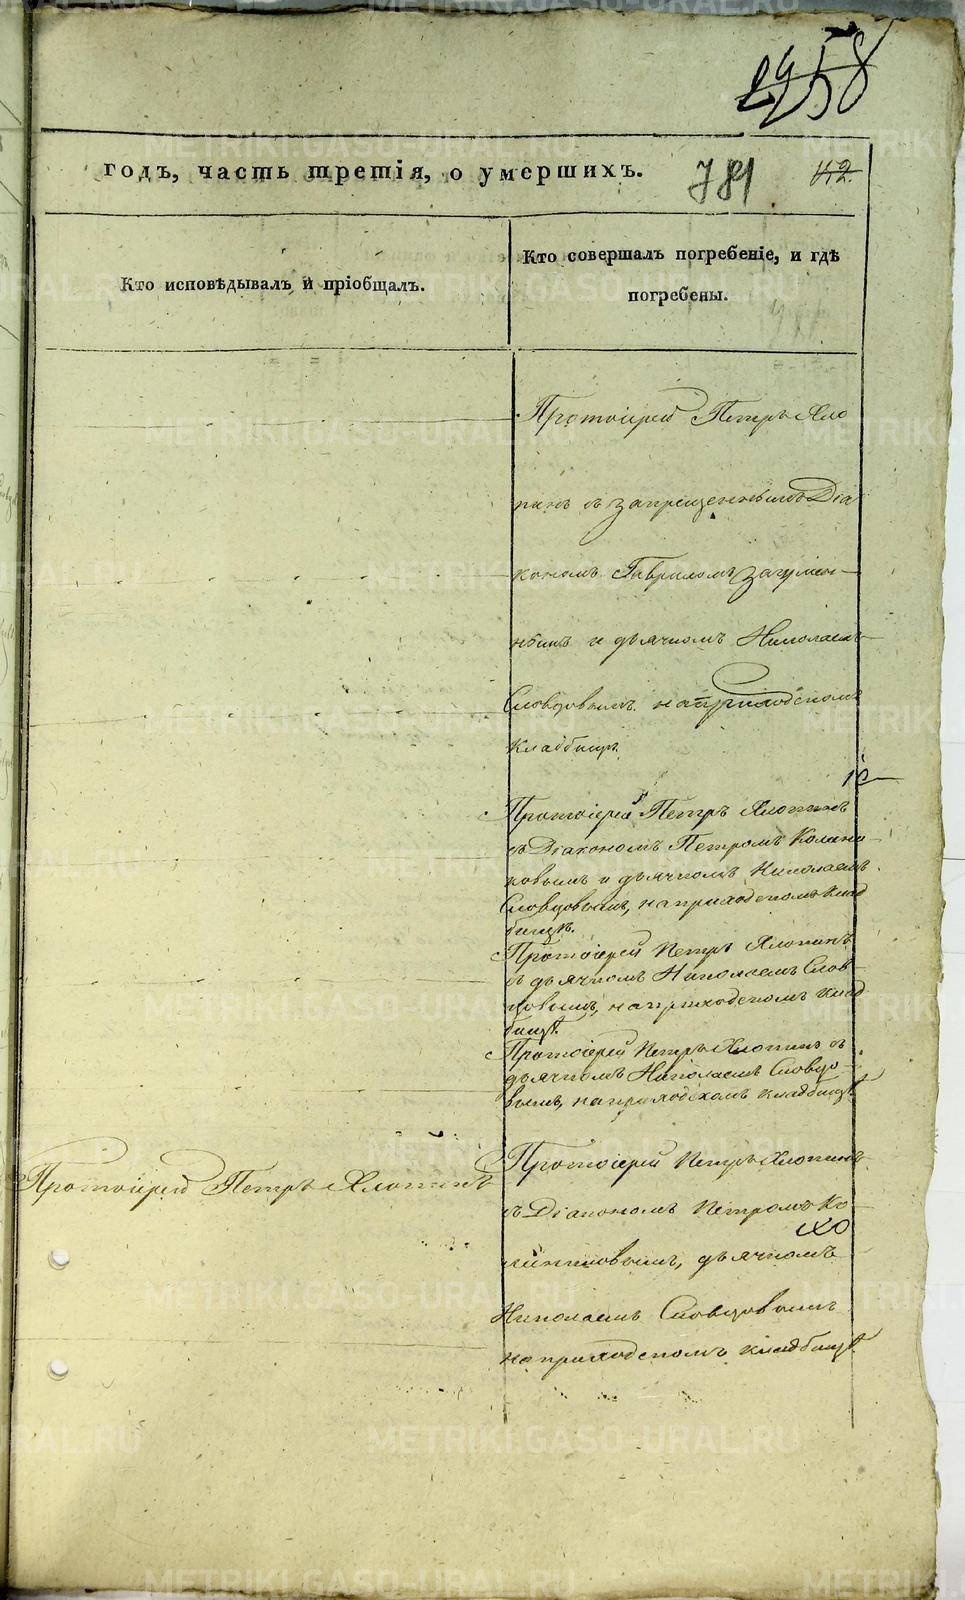 годъ, часть третія, о умершихъ.
781
42
Кто исповѣдывалъ и пріобщалъ.
Кто совершалъ погребеніе, и гдѣ
погребены.
Протоіерей Петръ Хло
пинъ съ запрещеннымъ Діа
кономъ Гавриломъ Загумен-
нымъ и дьячкомъ Николаемъ
Словцовымъ на приходскомъ
кладбищѣ
Протоіерей Петръ Хлопинъ
съ Діакономъ Петромъ
ковымъ и дьячкомъ Николаемъ
Словцовымъ, на приходскомъ клад
бищѣ.
Протоіерей Петръ Хлопинъ
съ дьячкомъ Николаемъ Слов-
цовымъ, на приходскомъ клад
бищѣ.
Протоіерей Петръ Хлопинъ съ
дьячкомъ Николаемъ Словцо-
вымъ, на приходскомъ кладбищѣ
Протоіерей Петръ Хлопинъ
Протоіерей Петръ Хлопинъ
съ Діакономъ Петромъ Ко-
дьячкомъ
Николаемъ Словцовымъ
на приходскомъ кладбищѣ.
METRIKI.GASO-URAL.RU